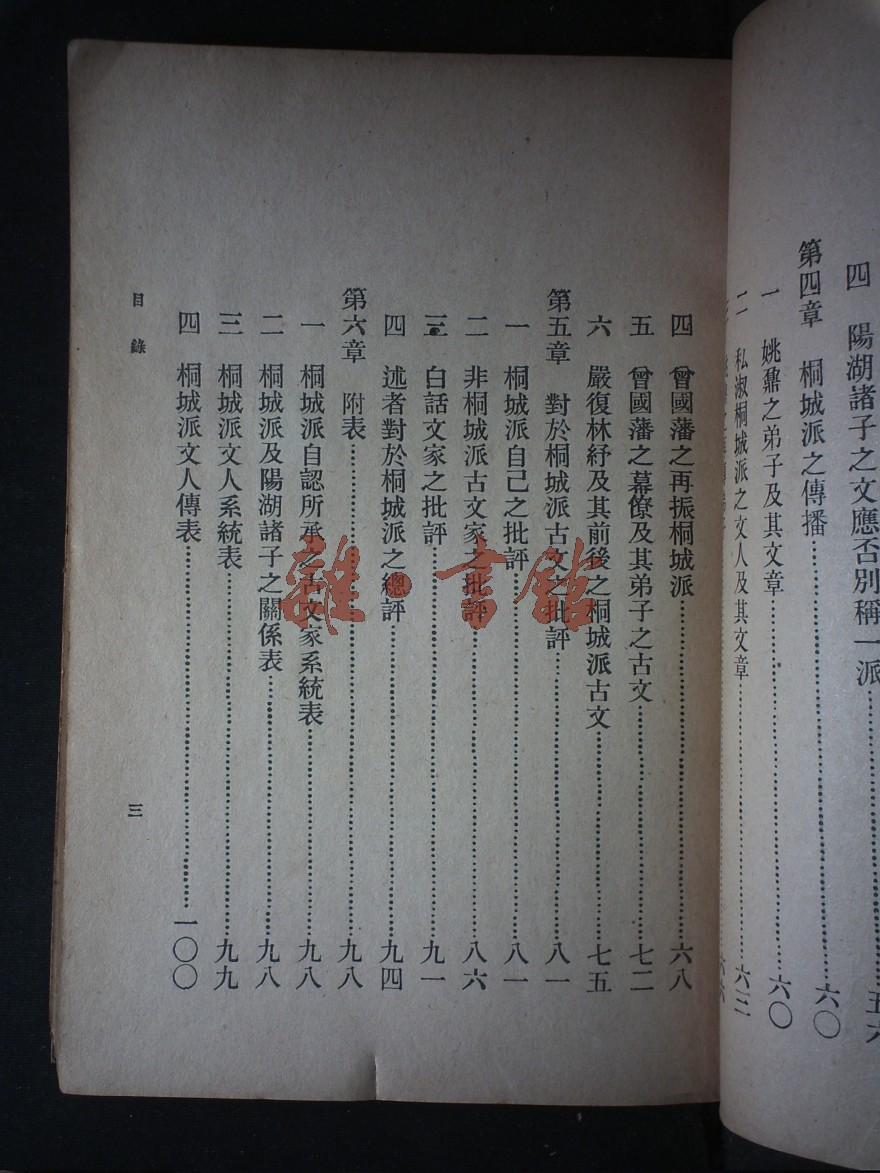 四　陽湖諸子之文應否別稱一派……五六
第四章　桐城派之傳播……六〇
一　姚鼐之弟子及其文章……六〇
二　私淑桐城派之文人及其文章……六三
四　曾國藩之再振桐城派……六八
五　曾國藩之幕僚及其弟子之古文……七二
六　嚴復林紓及其前後之桐城派古文……七五
第五章　對於桐城派古文之批評……八一
一　桐城派自己之批評……八一
二　非桐城派古文家之批評……八六
三　白話文家之批評……九一
四　述者對於桐城派之總評……九四
第六章　附表……九八
一　桐城派自認所承之古文家系統表……九八
二　桐城派及陽湖諸子之關係表……九八
三　桐城派文人系統表……九九
四　桐城派文人傳表……一〇〇
目錄
三
雜·書館